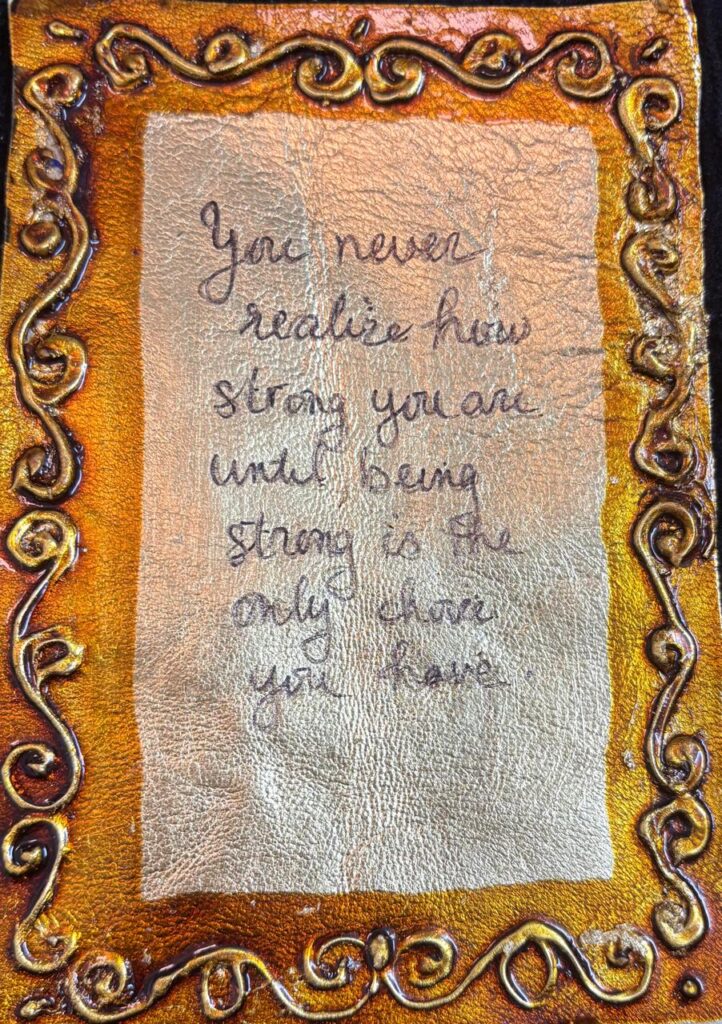 You never
realize how
strong you are
until being
strong is the
only choice
you have.